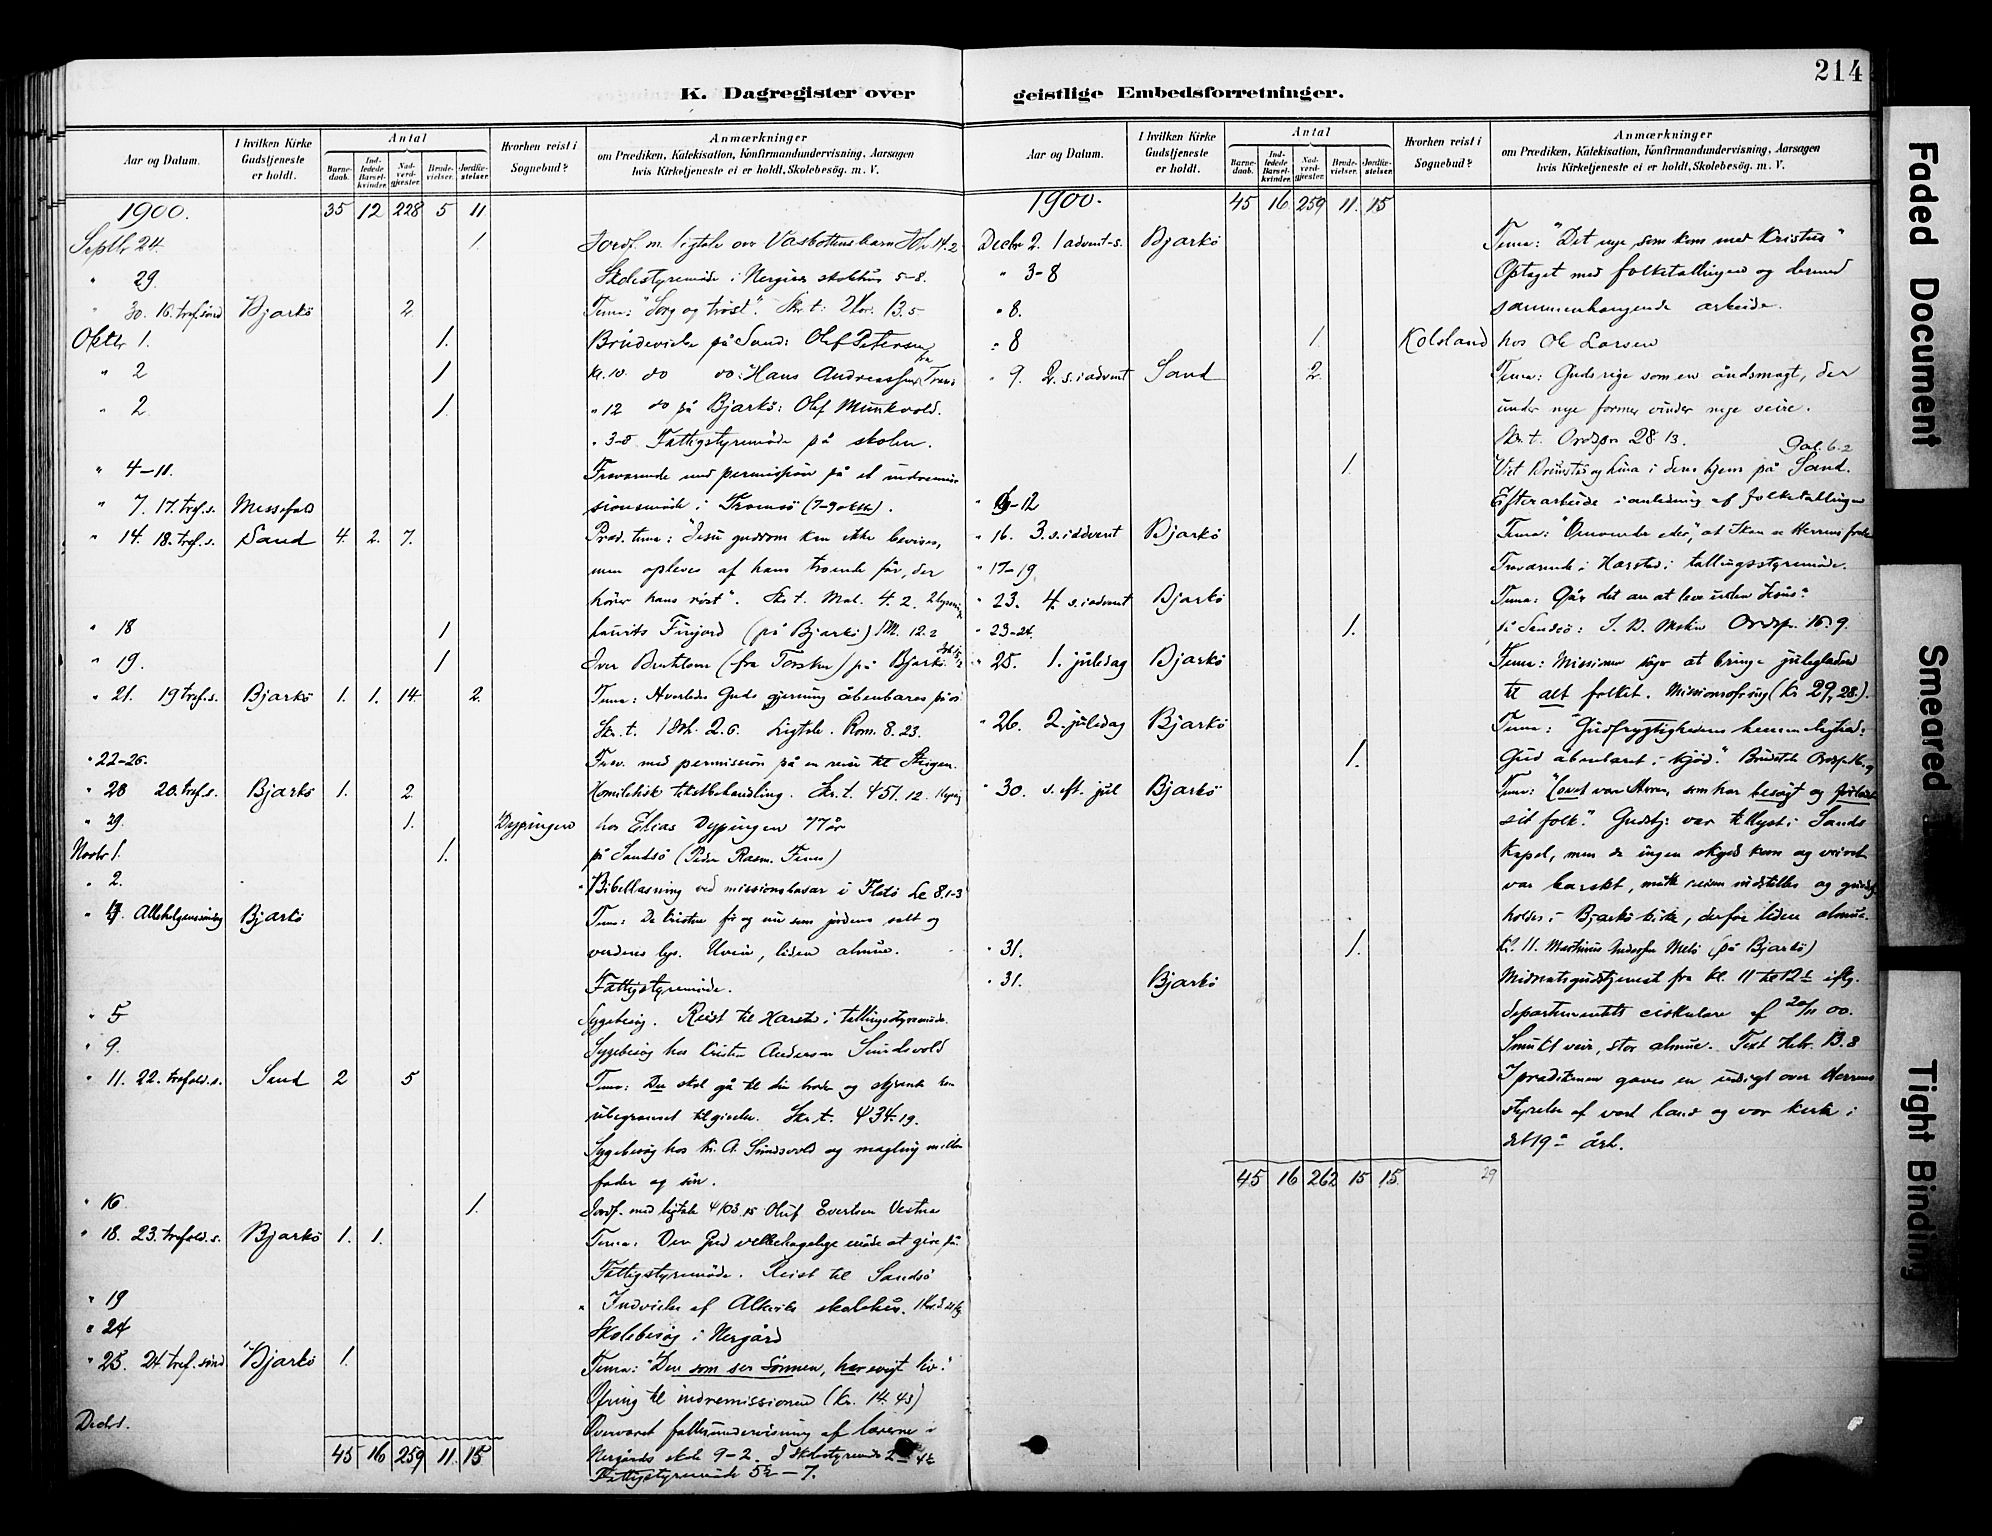 214
K. Dagregister over geistlige Embedsforretninger.
Aar og Datum.
I hvilken Kirke Gudstjeneste er holdt.
Antal
Barnedaab.
Indledede Barselkvinder.
Nadverdgjester.
Brudevielser.
Jordfæstelser.
Hvorhen reist i Sognebud?
Anmærkninger
om Prædiken, Katekisation, Konfirmandundervisning, Aarsagen
hvis Kirketjeneste ei er holdt, Skolebesög. m. V.
1900. 35 12 228 5 11
Septbr 24. 1 Jordf. m. ligtale over
" 29. Skolestyremøde i skolehus 5-8.
" 30. 16. tref. sönd Bjarkö 2 Tema: "Sorg og tröst". Skr. t. 2 Kor. 13.5
Oktbr 1. 1. Brudevielse på Sand: Olef Petersen
" 2 1 kl. 10. do do: Hans
" 2. 1. " 12 do på Bjarkö: Olef Munkvold.
" 3-5 Fattigstyremöde på skolen.
" 4-11. Fraværende med permission på et indremis
" 7. 17. tref. s. Messefald sionsmöde i Tromsö (7-9 oktbr).
" 14. 18. tref. s. Sand 4. 2. 7. Præd. tema: "Jesu guddom kan ikke bevises,
men opleves af hans troende får, der
hører hans røst". Skr. t. Mal. 4. 2.
" 18 1 (på Bjarkö) 1 M. 12. 2
" 19. 1 (fra Torsken) på Bjarkö.
" 21. 19 tref. s. Bjarkö 1. 1. 14. 2. Tema: Hvorledes Guds gjerning åbenbares på os
Skr. t. 1 Joh. 2. 6. Ligtale. Rom. 8. 23.
" 22-26. Frav. med permission på en reise til Steigen.
" 28 20. tref. s. Bjarkö 1. 2. Homiletisk tekstbehandling. Skr. t. 451. 12.
" 29. 1. Dypingen hos Elias Dypingen 77 år
Novbr 1. 1. på Sandsö (Peder Rasm.
" 2. Bibellæsning ved missionsbasar i Fletö
" 4. Allehelgenssöndag Bjarkö Tema: De kristne för og nu som jordens salt og
verdens lys. Uveir, liden almue.
Fattigstyremöde.
" 5 Sygebesög. Reist til Harstad i tællingsstyremöde.
" 9. Sygebesög hos Kristen Andersen Sundsvold
" 11. 22. trefold. s. Sand 2 5 Tema: Du skal gå til din broder og skjenke ham
ubegrænset tilgivelse. Skr. t. 434. 19.
Sygebesög hos Kr. A. Sundsvold og mægling mellem
fader og sön.
" 16. 1. Jordf. med ligtale 4103. 15 Oluf
" 18. 23. trefold. s. Bjarkö 1. 1. Tema: Den Gud velbehagelige måde at give på.
Fattigstyremöde. Reist til Sandsö
" 19 Indvielse af skolehus.
" 24 Skolebesög i Nergård
" 25. 24 tref. sönd Bjarkö 1. Tema: "Den som ser Sönnen, har evigt liv."
Ofring til indremissionen (Kr. 14. 43)
Decbr 1. Overværet fællesundervisning af lærerne i
Nergårds skole 9-2. I skolestyremöde 2-4½
Fattigstyremöde 5½-7.
45 16 259 11 15
Aar og Datum.
I hvilken Kirke Gudstjeneste er holdt.
Antal
Barnedaab.
Indledede Barselkvinder.
Nadverdgjester.
Brudevielser.
Jordfæstelser.
Hvorhen reist i Sognebud?
Anmærkninger
om Prædiken, Katekisation, Konfirmandundervisning, Aarsagen
hvis Kirketjeneste ei er holdt, Skolebesög. m. V.
1900. 45 16 259 11. 15
Decbr 2. 1 advent-s. Bjarkö Tema: "Det nye som kom med Kristus"
" 3-8 Optaget med folketællingen og dermed
" 8. sammenhængende arbeide.
" 8 1. Kolsland hos Ole Larsen
" 9. 2. s. i advent Sand 2. Tema: Guds rige som en åndsmagt, der
under nye former vinder nye seire.
Skr. t. Ordspr 28 13. Gal. 6. 2
1. i deres hjem på Sand.
" 9-12 Efterarbeide i anledning af folketællingen
" 16. 3. s. i advent Bjarkö Tema: "Omvender eder",
" 17-19. Fraværende i Harstad i tællingsstyremöde.
" 23. 4. s. i advent Bjarkö Tema: Går det an at leve uden Jesus?
" 23-24. 1. på Sandsö: Ordspr. 16. 9.
" 25. 1. juledag Bjarkö Tema: Missionen söger at bringe juleglæden
til alt folket. Missionsofring (Kr 29,28).
" 26. 2. juledag Bjarkö Tema: "Gudfrygtighedens hemmelighed:
1. Gud åbenbaret i kjöd."
" 30. s. eft. jul Bjarkö Tema: "Lovet være Herren, som har besøgt og forløst
sit folk." Gudstj: var tillyst i Sands
kapel, men da ingen skyds kom og veiret
var barskt, måtte reisen indstilles og gudstj
holdes i Bjarkö kirke, derfor liden almue.
" 31. 1. Kl. 11. Martinus Melö (på Bjarkö)
" 31. Bjarkö Midnatsgudstjenest fra kl. 11 til 12½ iflg.
departementets cirkulære af 20/11 00.
Smukt veir, stor almue. Text Hebr. 13. 8
I prædikenen gaves en udsigt over Herrens
styrelse af vort land og vor kirke i
det 19de årh.
45 16 262 15 15. 29
Faded Document
Smeared
Tight Binding